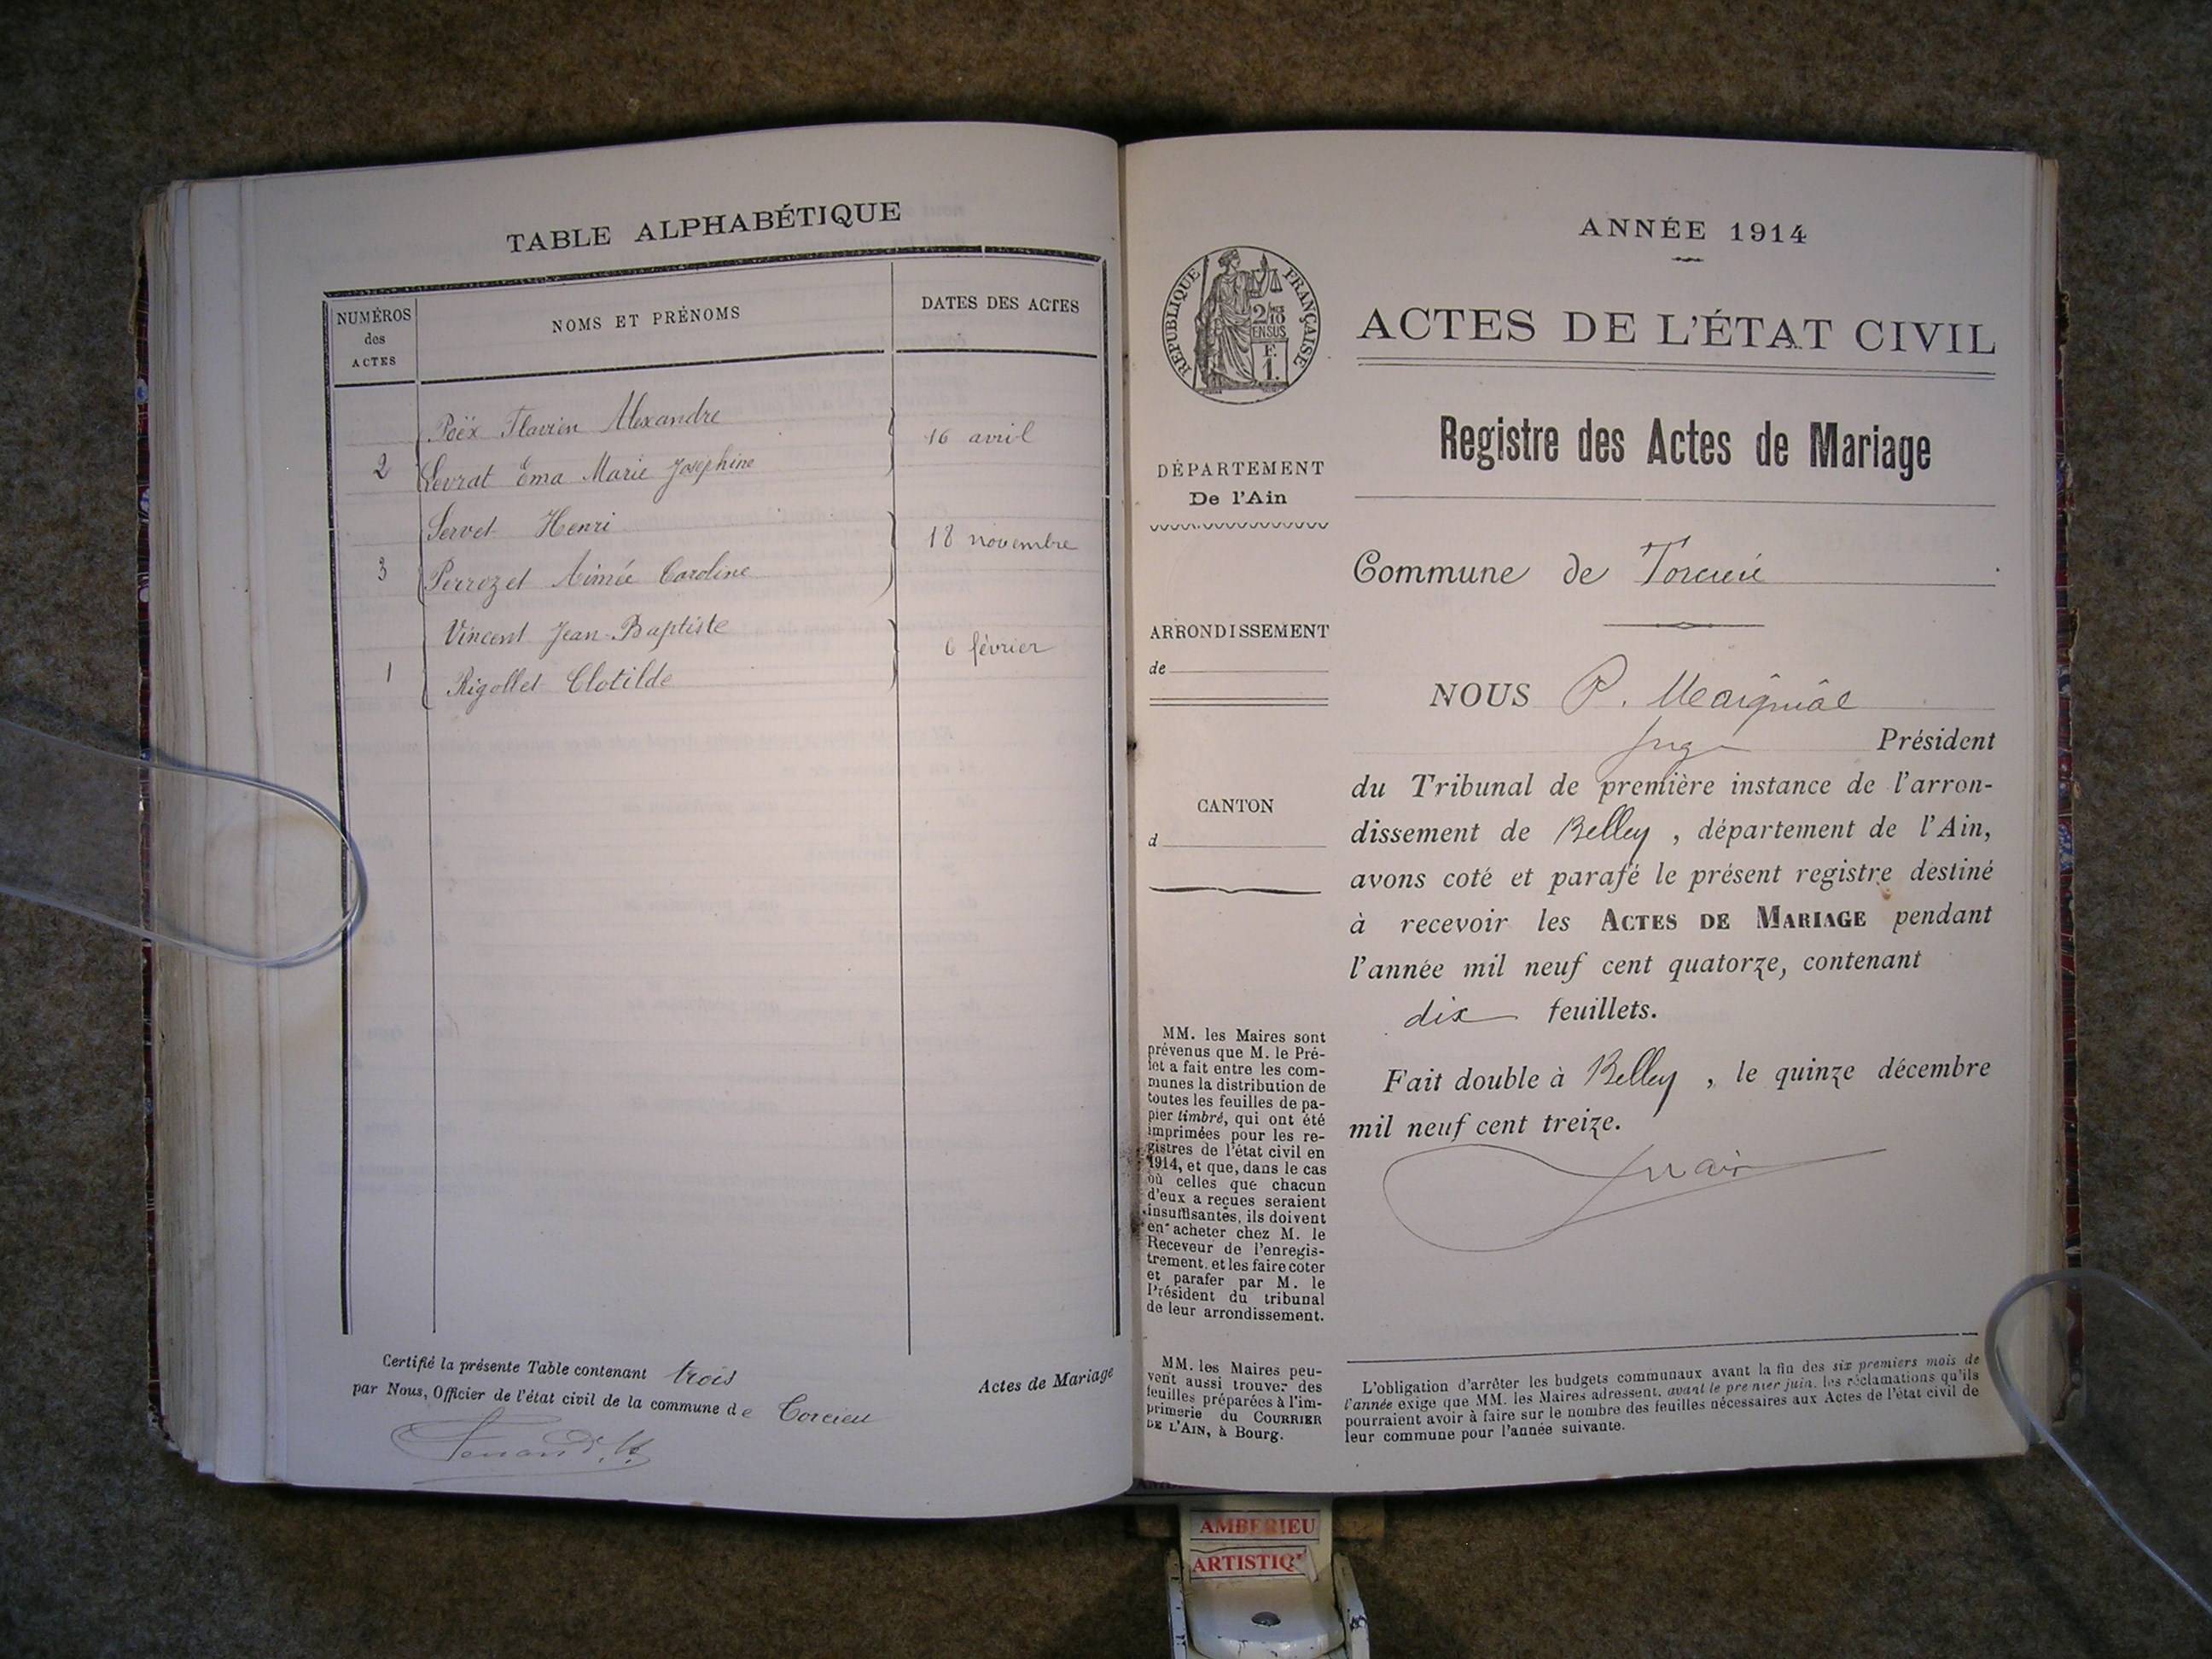 TABLE ALPHABÉTIQUE
NUMÉROS des ACTES
NOMS ET PRÉNOMS
DATES DES ACTES
Poëx Flavien Alexandre
16 avril
2 Levrat Ema Marie Joséphine
Servet Henri
18 novembre
3 Perrozet Aimée Caroline
Vincent Jean-Baptiste
6 février
1 Rigollet Clotilde
Certifié la présente Table contenant trois Actes de Mariage
par Nous, Officier de l'état civil de la commune de Torcieu
ANNÉE 1914
RÉPUBLIQUE FRANÇAISE
ACTES DE L'ÉTAT CIVIL
Registre des Actes de Mariage
DÉPARTEMENT
De l'Ain
Commune de Torcieu
ARRONDISSEMENT
de
NOUS P.
Juge Président
du Tribunal de première instance de l'arron-
dissement de Belley , département de l'Ain,
avons coté et parafé le présent registre destiné
à recevoir les ACTES DE MARIAGE pendant
l'année mil neuf cent quatorze, contenant
dix feuillets.
Fait double à Belley , le quinze décembre
mil neuf cent treize.
CANTON
d
MM. les Maires sont
prévenus que M. le Pré-
fet a fait entre les com-
munes la distribution de
toutes les feuilles de pa-
pier timbré, qui ont été
imprimées pour les re-
gistres de l'état civil en
1914, et que, dans le cas
où celles que chacun
d'eux a reçues seraient
insuffisantes, ils doivent
en acheter chez M. le
Receveur de l'enregis-
trement, et les faire coter
et parafer par M. le
Président du tribunal
de leur arrondissement.
MM. les Maires peu-
vent aussi trouver des
feuilles préparées à l'im-
primerie du COURRIER
DE L'AIN, à Bourg.
L'obligation d'arrêter les budgets communaux avant la fin des six premiers mois de
l'année exige que MM. les Maires adressent, avant le premier juin, les réclamations qu'ils
pourraient avoir à faire sur le nombre des feuilles nécessaires aux Actes de l'état civil de
leur commune pour l'année suivante.
AMBERIEU
ARTISTIQ